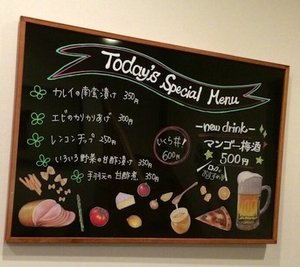 Today's Special Menu
カレイの南蛮漬け 350円
エビのかりかりあげ 300円
レンコンチップ 250円
いろいろ野菜の甘酢漬け 350円
手羽元の甘酢煮 350円
いくら丼!
600円
-new drink-
マンゴー梅酒
500円